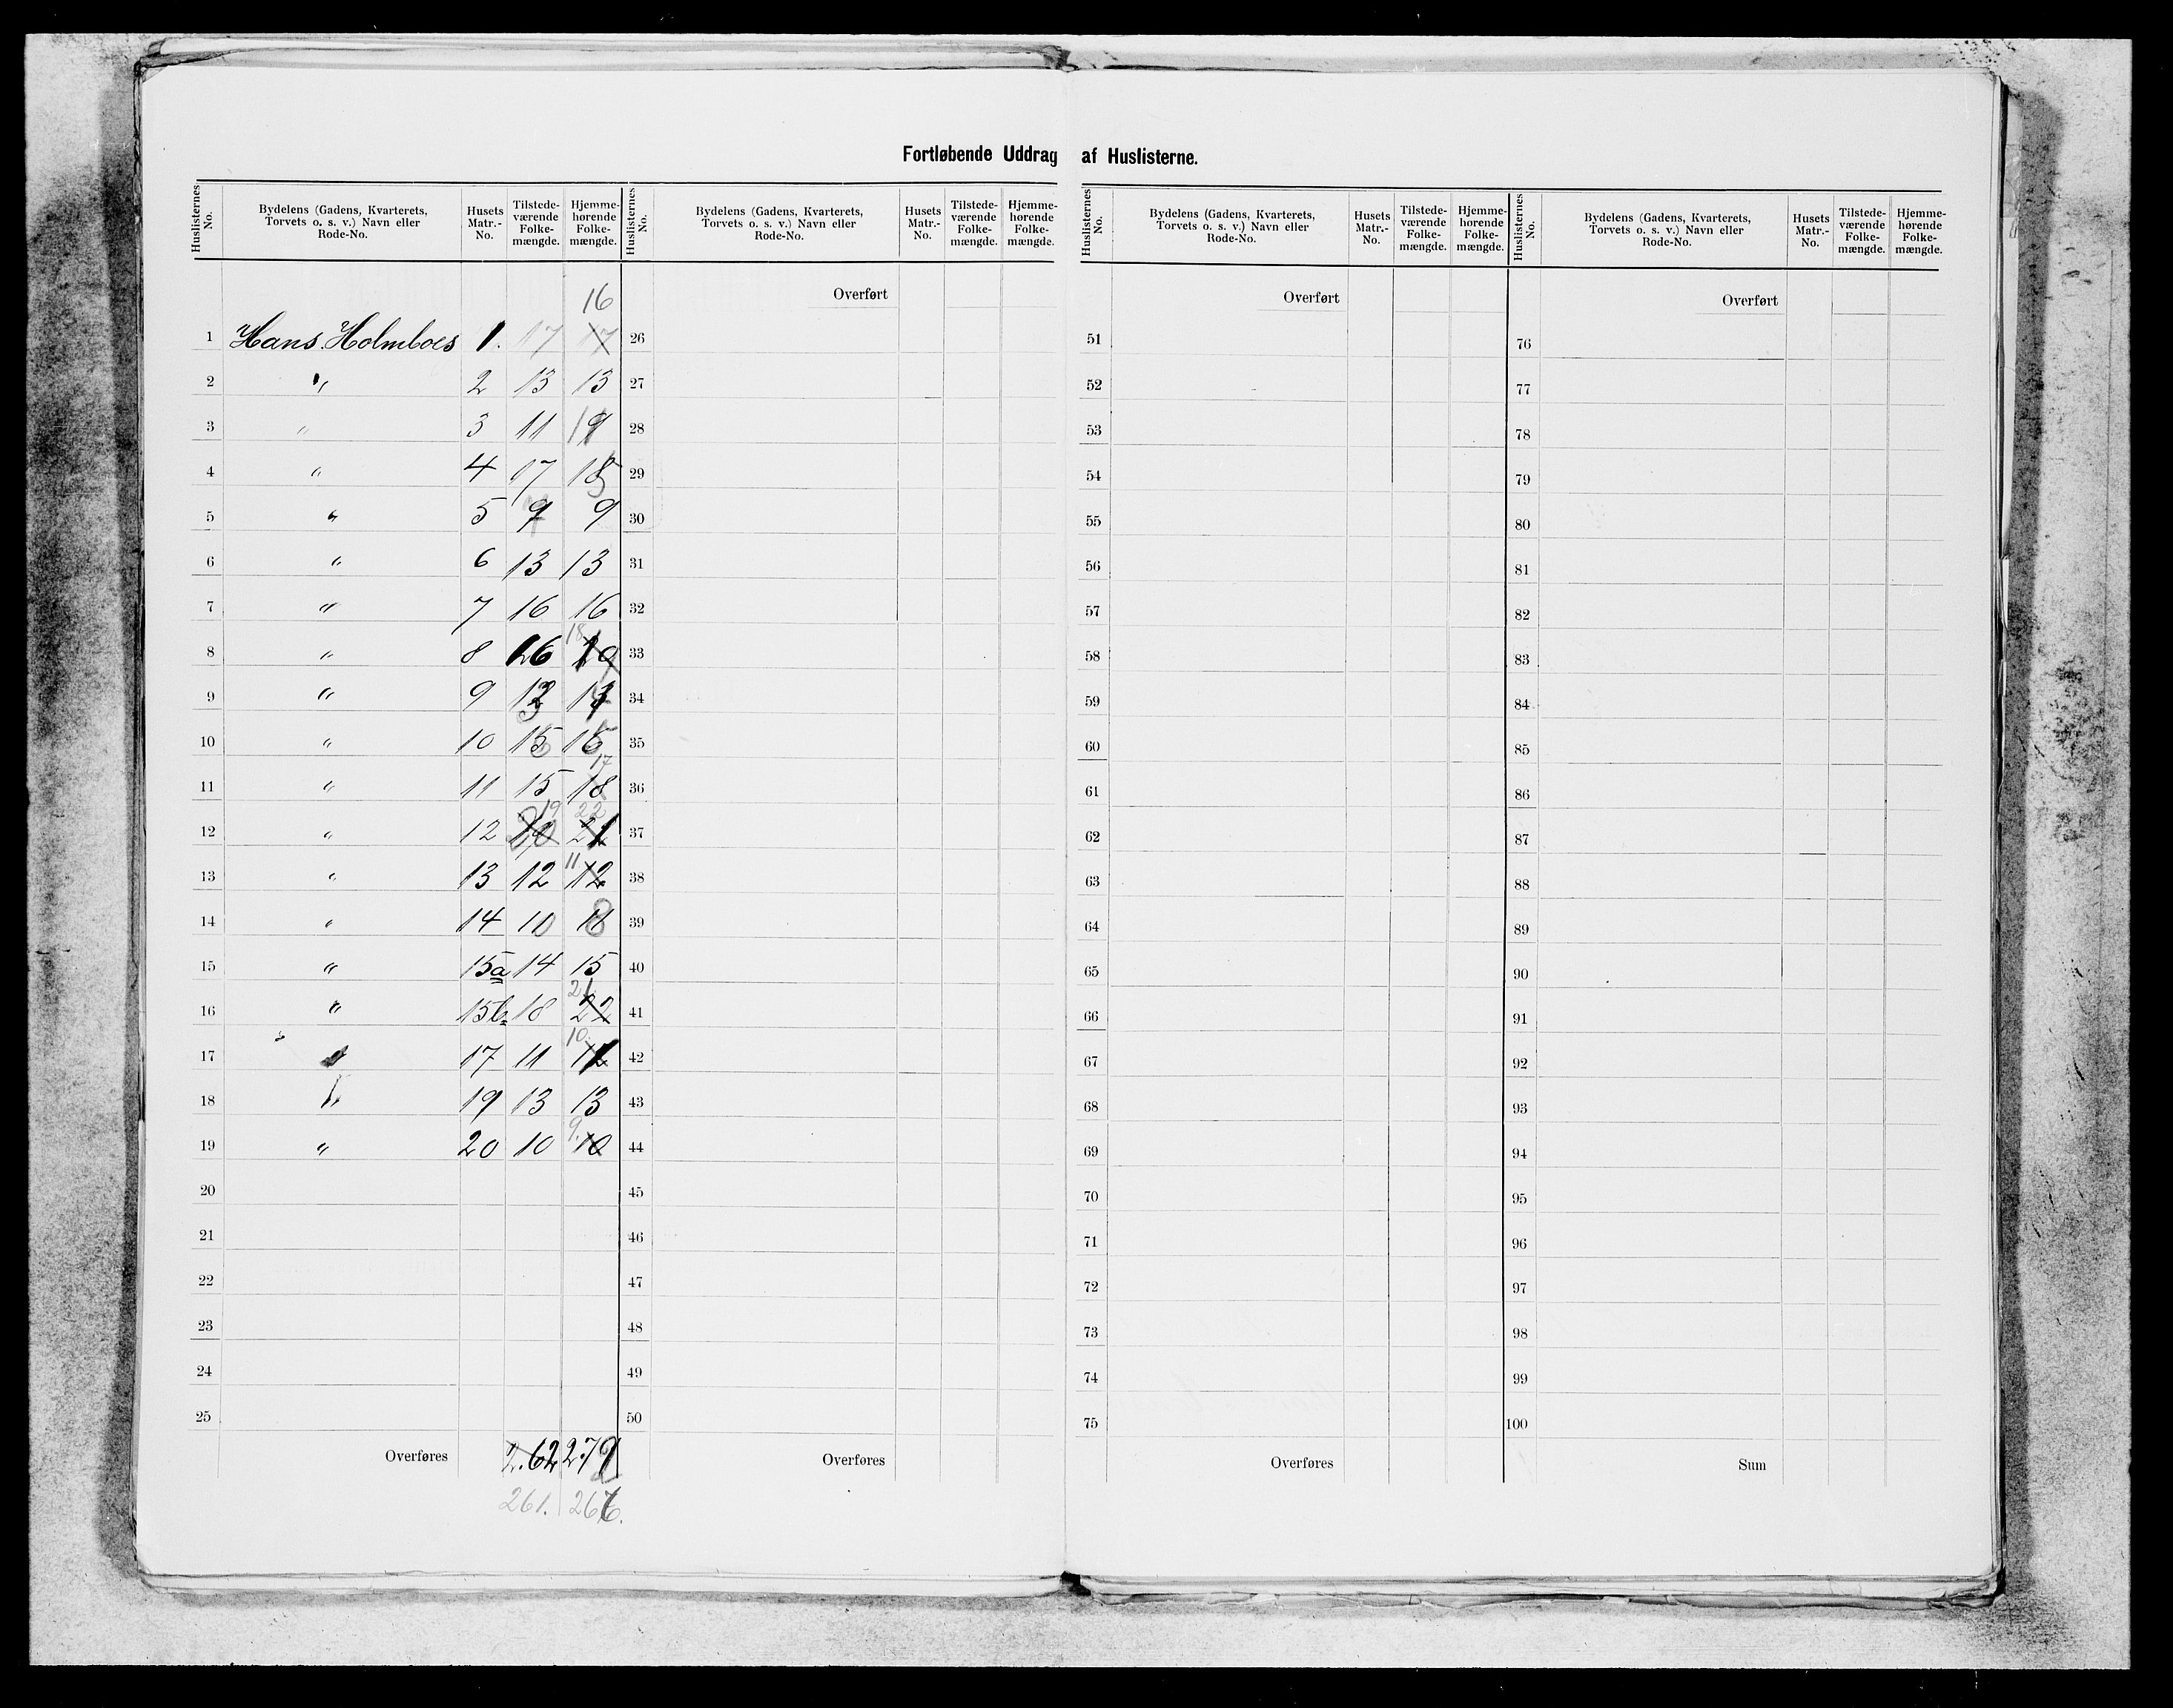 Fortløbende Uddrag af Huslisterne.
Huslisternes No. Bydelens (Gadens, Kvarterets, Torvets o. s. v.) Navn eller Rode-No. Husets Matr.-No. Tilstedeværende Folkemængde. Hjemmehørende Folkemængde.
Huslisternes No. Bydelens (Gadens, Kvarterets, Torvets o. s. v.) Navn eller Rode-No. Husets Matr.-No. Tilstedeværende Folkemængde. Hjemmehørende Folkemængde.
Huslisternes No. Bydelens (Gadens, Kvarterets, Torvets o. s. v.) Navn eller Rode-No. Husets Matr.-No. Tilstedeværende Folkemængde. Hjemmehørende Folkemængde.
Huslisternes No. Bydelens (Gadens, Kvarterets, Torvets o. s. v.) Navn eller Rode-No. Husets Matr.-No. Tilstedeværende Folkemængde. Hjemmehørende Folkemængde.
16 Overført Overført Overført
1 Hans Holmboes 1. 17 17 26 51 76
2 " 2 13 13 27 52 77
3 " 3 11 28 53 78
4 " 4 17 18 29 54 79
5 " 5 9 9 30 55 80
6 " 6 13 13 31 56 81
7 " 7 16 16 32 57 82
18
8 " 8 16 33 58 83
9 " 9 34 59 84
10 " 10 35 60 85
17
11 " 11 15 18 36 61 86
19 22
12 " 12 37 62 87
11
13 " 13 12 12 38 63 88
14 " 14 10 39 64 89
15 " 15a 14 15 40 65 90
21
16 " 15b 18 22 41 66 91
10
17 " 17 11 42 67 92
18 " 19 13 13 43 68 93
9.
19 " 20 10 10 44 69 94
20 45 70 95
21 46 71 96
22 47 72 97
23 48 73 98
24 49 74 99
25 50 75 100
Overføres 262 279 Overføres Overføres Sum
261. 266.